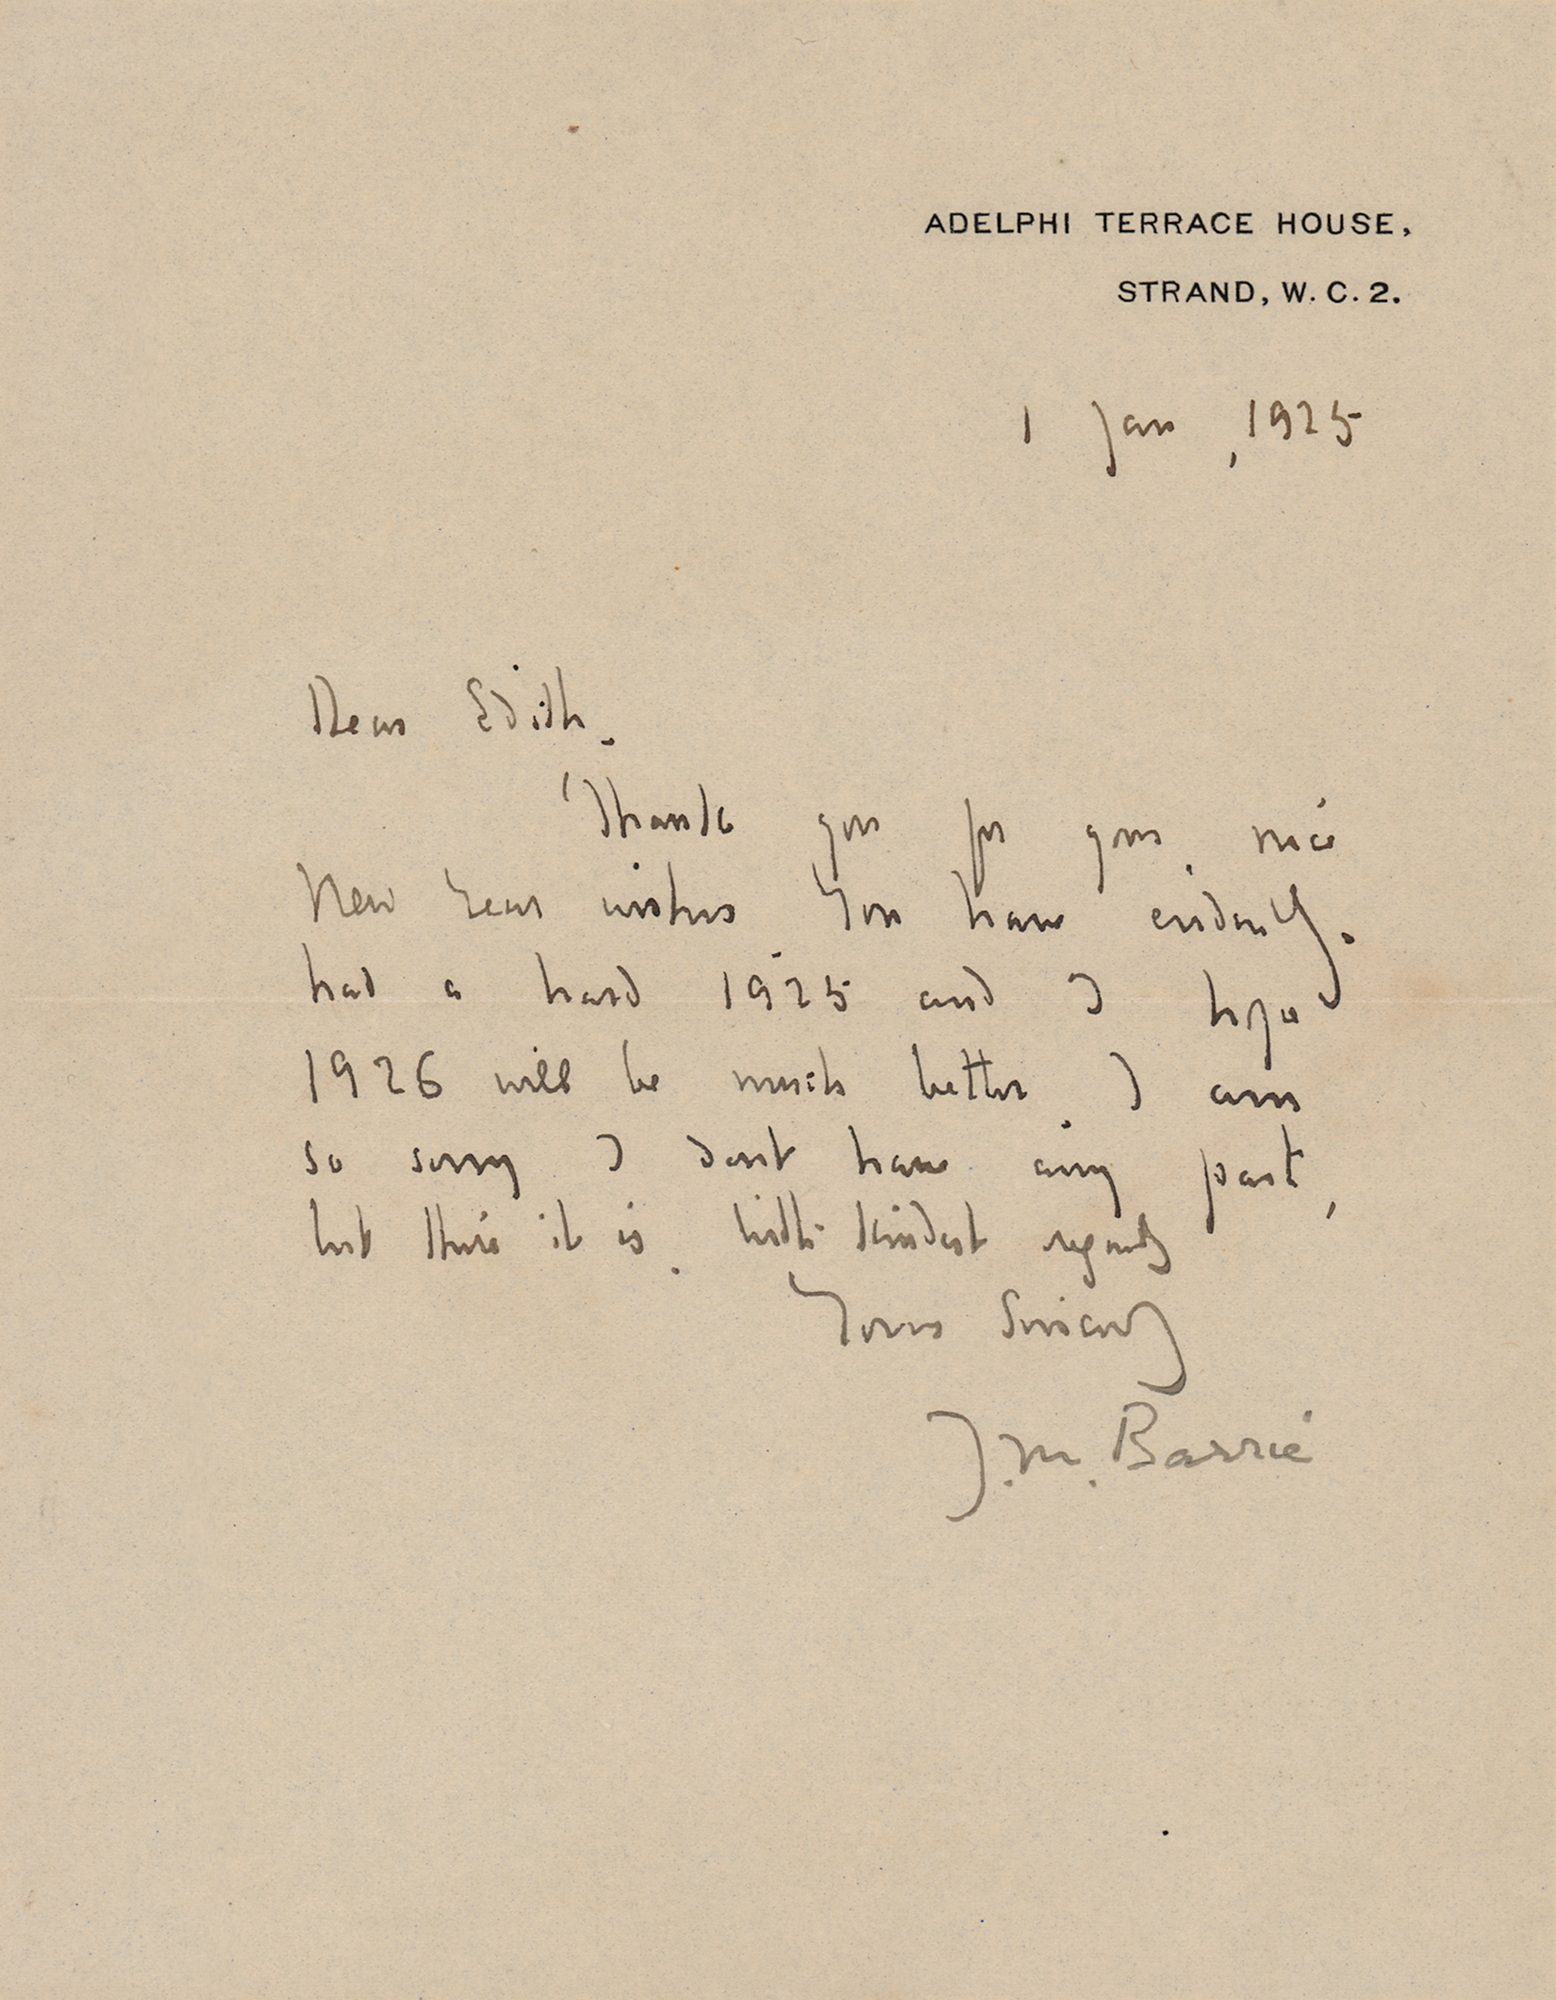 ADELPHI TERRACE HOUSE,
STRAND, W.C.2.
1 Jan, 1925
Dear Edith.
Thank you for your nice
New Year wishes. You have evidently
had a hard 1925 and I hope
1926 will be much better. I am
so sorry I dont have any part,
but there it is. With kindest regards
Yours Sincerely
J.M. Barrie